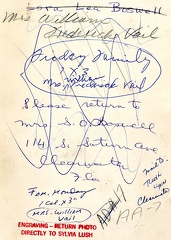 Lora Lee Boswell
Mrs William
Frederick Vail
Friday Family
mother
Mrs. Frederick Vail
Please return to
Mrs S. O. Boswell
1/4 S. Saturn Ave
Clearwater
Fla
For Monday
1 Col. x 3"
Mrs. William
Vail
Clearwater
AA-7
ENGRAVING - RETURN PHOTO
DIRECTLY TO SYLVIA LUSH